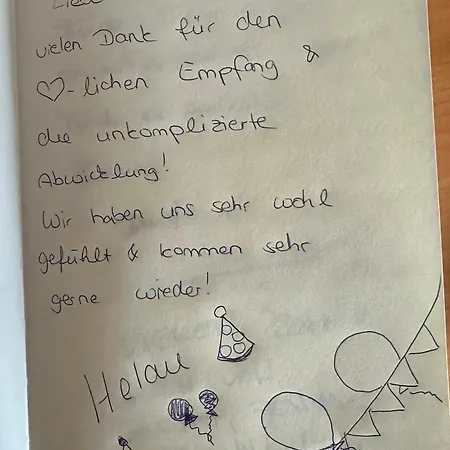 vielen Dank für den
♡-lichen Empfang &
die unkomplizierte
Abwicklung!
Wir haben uns sehr wohl
gefühlt & kommen sehr
gerne wieder!
Helau